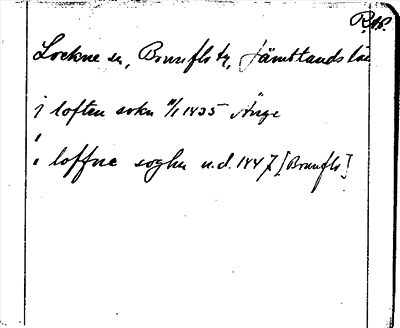 Lockne sn, Brunflo tg, Jämtlands län
i loften sokn 11/1 1435 Änge
i loffne soghn u.d. 1447 [Brunflo]